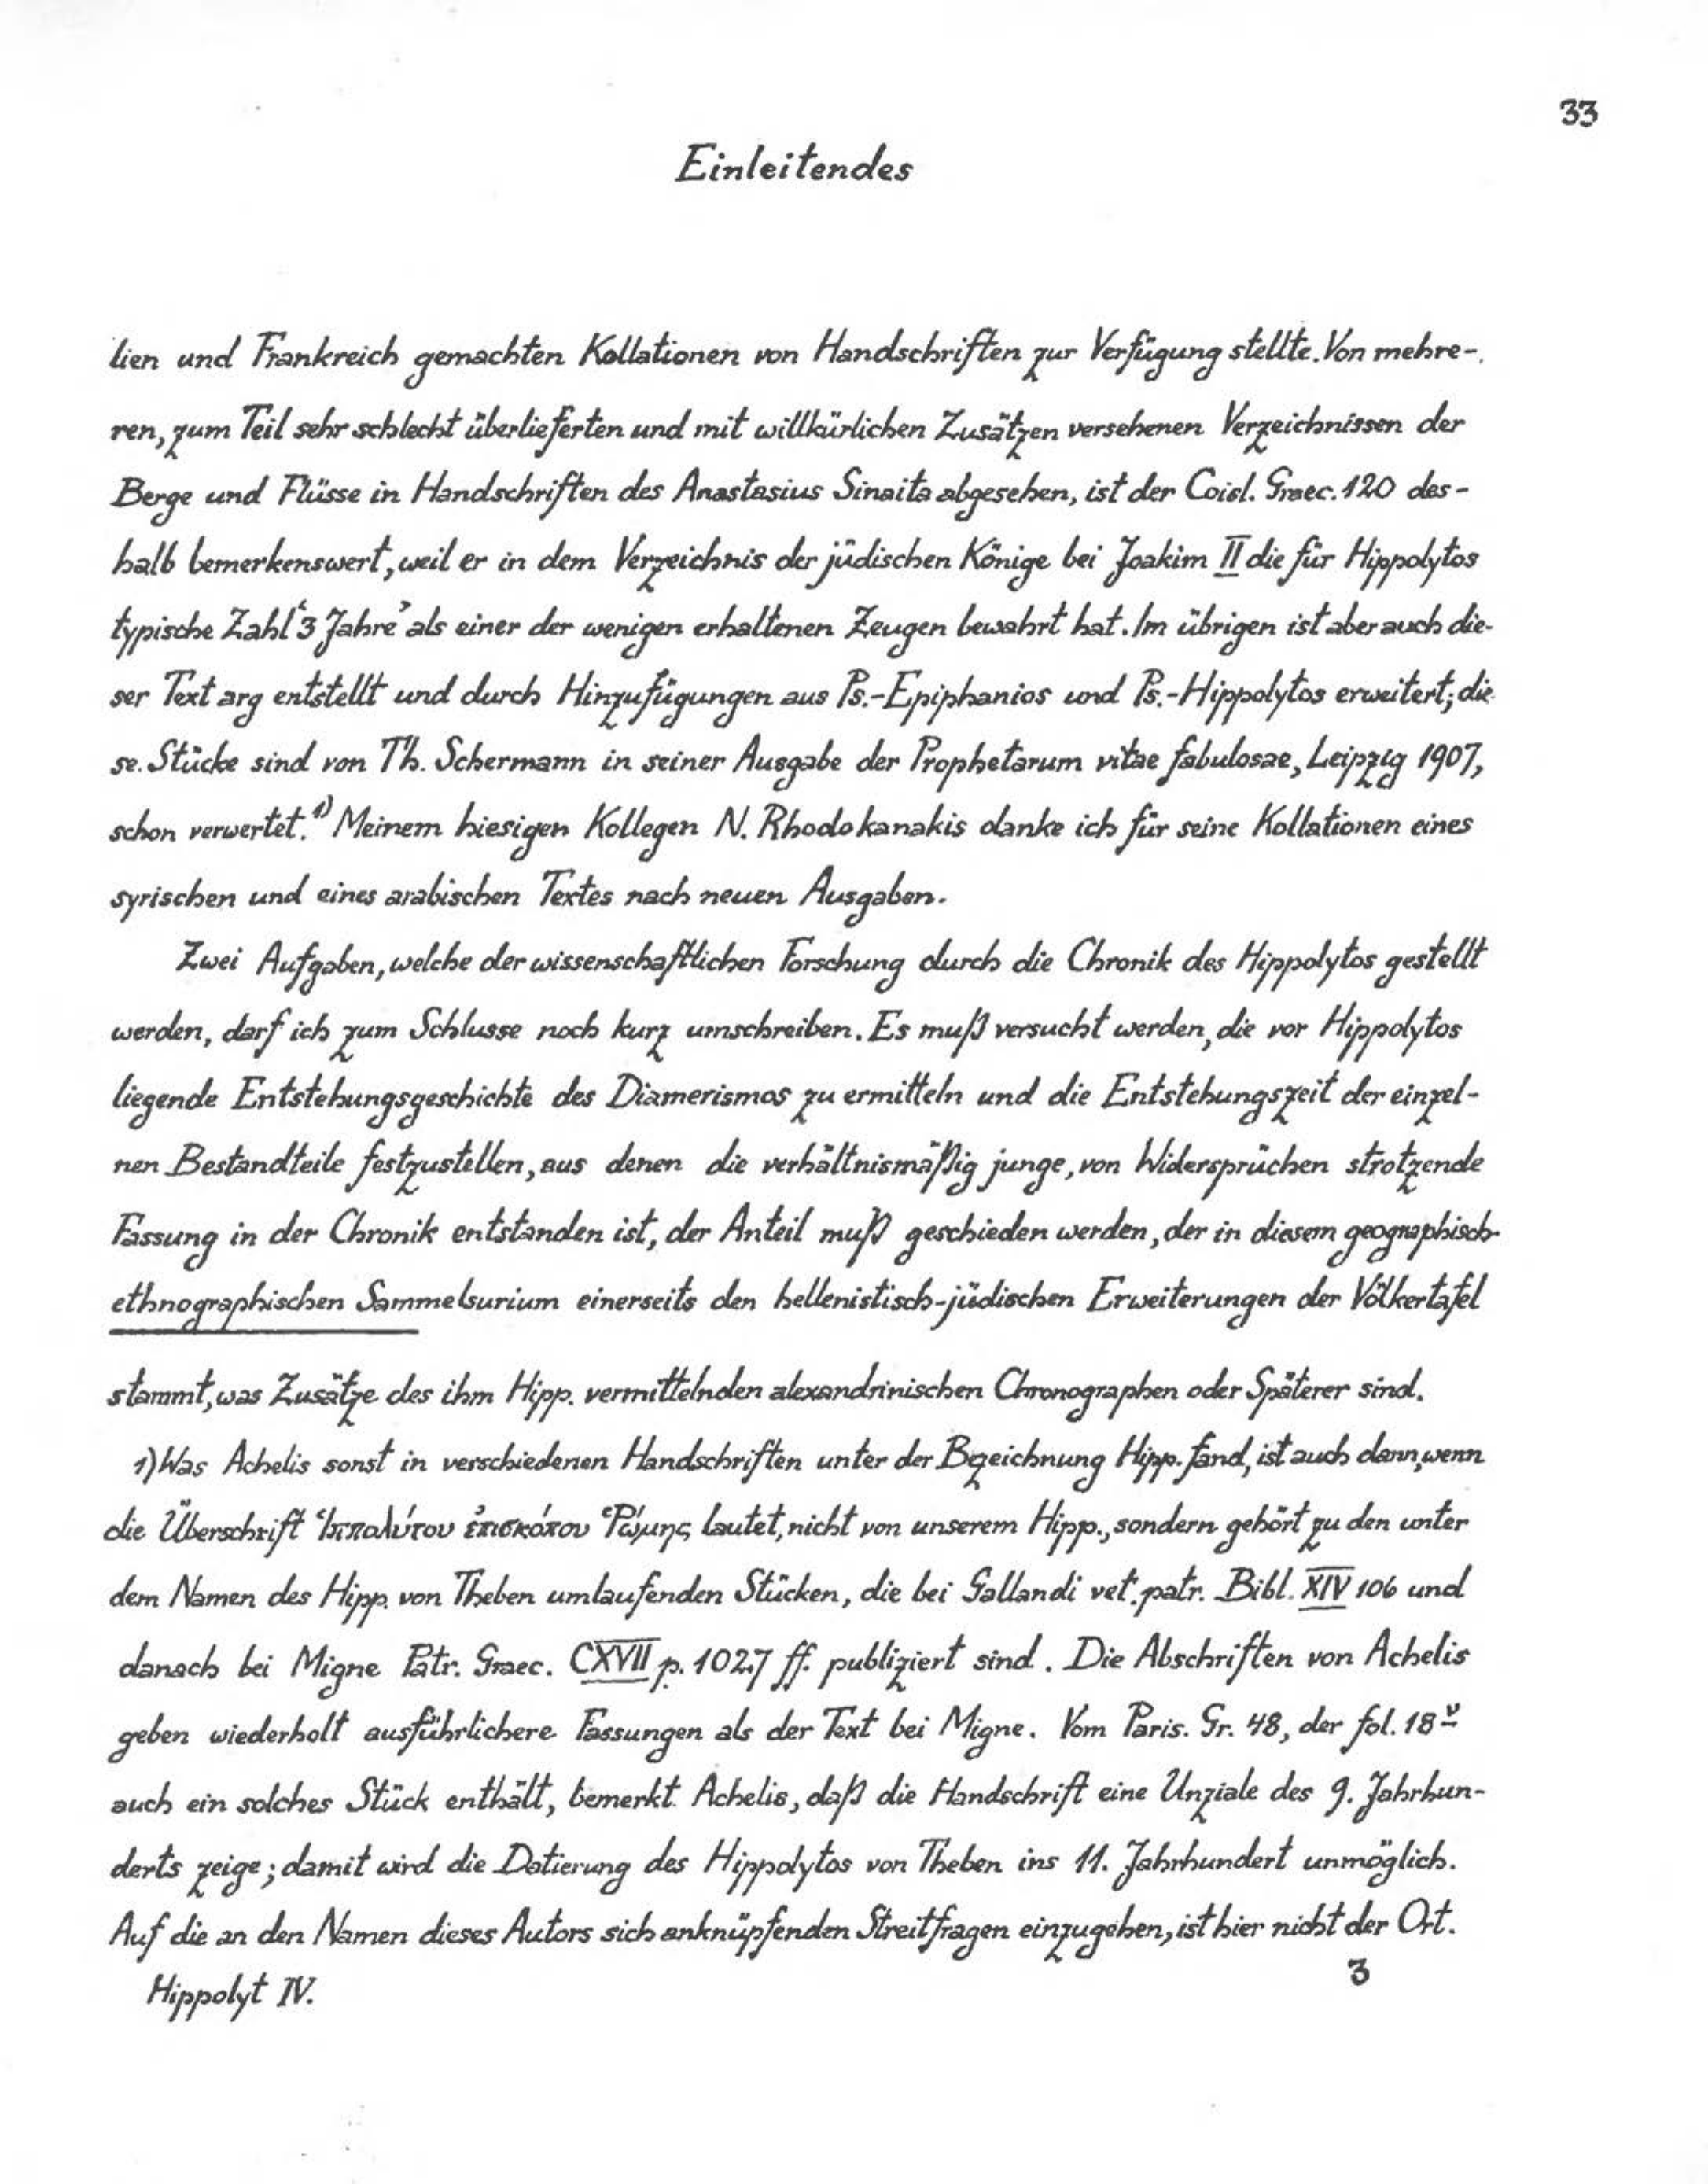 33
Einleitendes
lien und Frankreich gemachten Kollationen von Handschriften zur Verfügung stellte. Von mehre-
ren, zum Teil sehr schlecht überlieferten und mit willkürlichen Zusätzen versehenen Verzeichnissen der
Berge und Flüsse in Handschriften des Anastasius Sinaita abgesehen, ist der Coisl. Graec. 120 des-
halb bemerkenswert, weil er in dem Verzeichnis der jüdischen Könige bei Joakim II die für Hippolytos
typische Zahl ‘3 Jahre’ als einer der wenigen erhaltenen Zeugen bewahrt hat. Im übrigen ist aber auch die-
ser Text arg entstellt und durch Hinzufügungen aus Ps.-Epiphanios und Ps.-Hippolytos erweitert; die
se. Stücke sind von Th. Schermann in seiner Ausgabe der Prophetarum vitae fabulosae, Leipzig 1907,
schon verwertet.¹⁾ Meinem hiesigen Kollegen N. Rhodokanakis danke ich für seine Kollationen eines
syrischen und eines arabischen Textes nach neuen Ausgaben.
Zwei Aufgaben, welche der wissenschaftlichen Forschung durch die Chronik des Hippolytos gestellt
werden, darf ich zum Schlusse noch kurz umschreiben. Es muß versucht werden, die vor Hippolytos
liegende Entstehungsgeschichte des Diamerismos zu ermitteln und die Entstehungszeit der einzel-
nen Bestandteile festzustellen, aus denen die verhältnismäßig junge, von Widersprüchen strotzende
Fassung in der Chronik entstanden ist, der Anteil muß geschieden werden, der in diesem geographisch-
ethnographischen Sammelsurium einerseits den hellenistisch-jüdischen Erweiterungen der Völkertafel
stammt, was Zusätze des ihm Hipp. vermittelnden alexandrinischen Chronographen oder Späterer sind.
1) Was Achelis sonst in verschiedenen Handschriften unter der Bezeichnung Hipp. fand, ist auch dann, wenn
die Überschrift Ἱππολύτου ἐπισκόπου Ῥώμης lautet, nicht von unserem Hipp., sondern gehört zu den unter
dem Namen des Hipp. von Theben umlaufenden Stücken, die bei Gallandi vet. patr. Bibl. XIV 106 und
danach bei Migne Patr. Graec. CXVII p. 1027 ff. publiziert sind. Die Abschriften von Achelis
geben wiederholt ausführlichere Fassungen als der Text bei Migne. Vom Paris. Gr. 48, der fol. 18ᵛ
auch ein solches Stück enthält, bemerkt Achelis, daß die Handschrift eine Unziale des 9. Jahrhun-
derts zeige; damit wird die Datierung des Hippolytos von Theben ins 11. Jahrhundert unmöglich.
Auf die an den Namen dieses Autors sich anknüpfenden Streitfragen einzugehen, ist hier nicht der Ort.
Hippolyt IV.
3